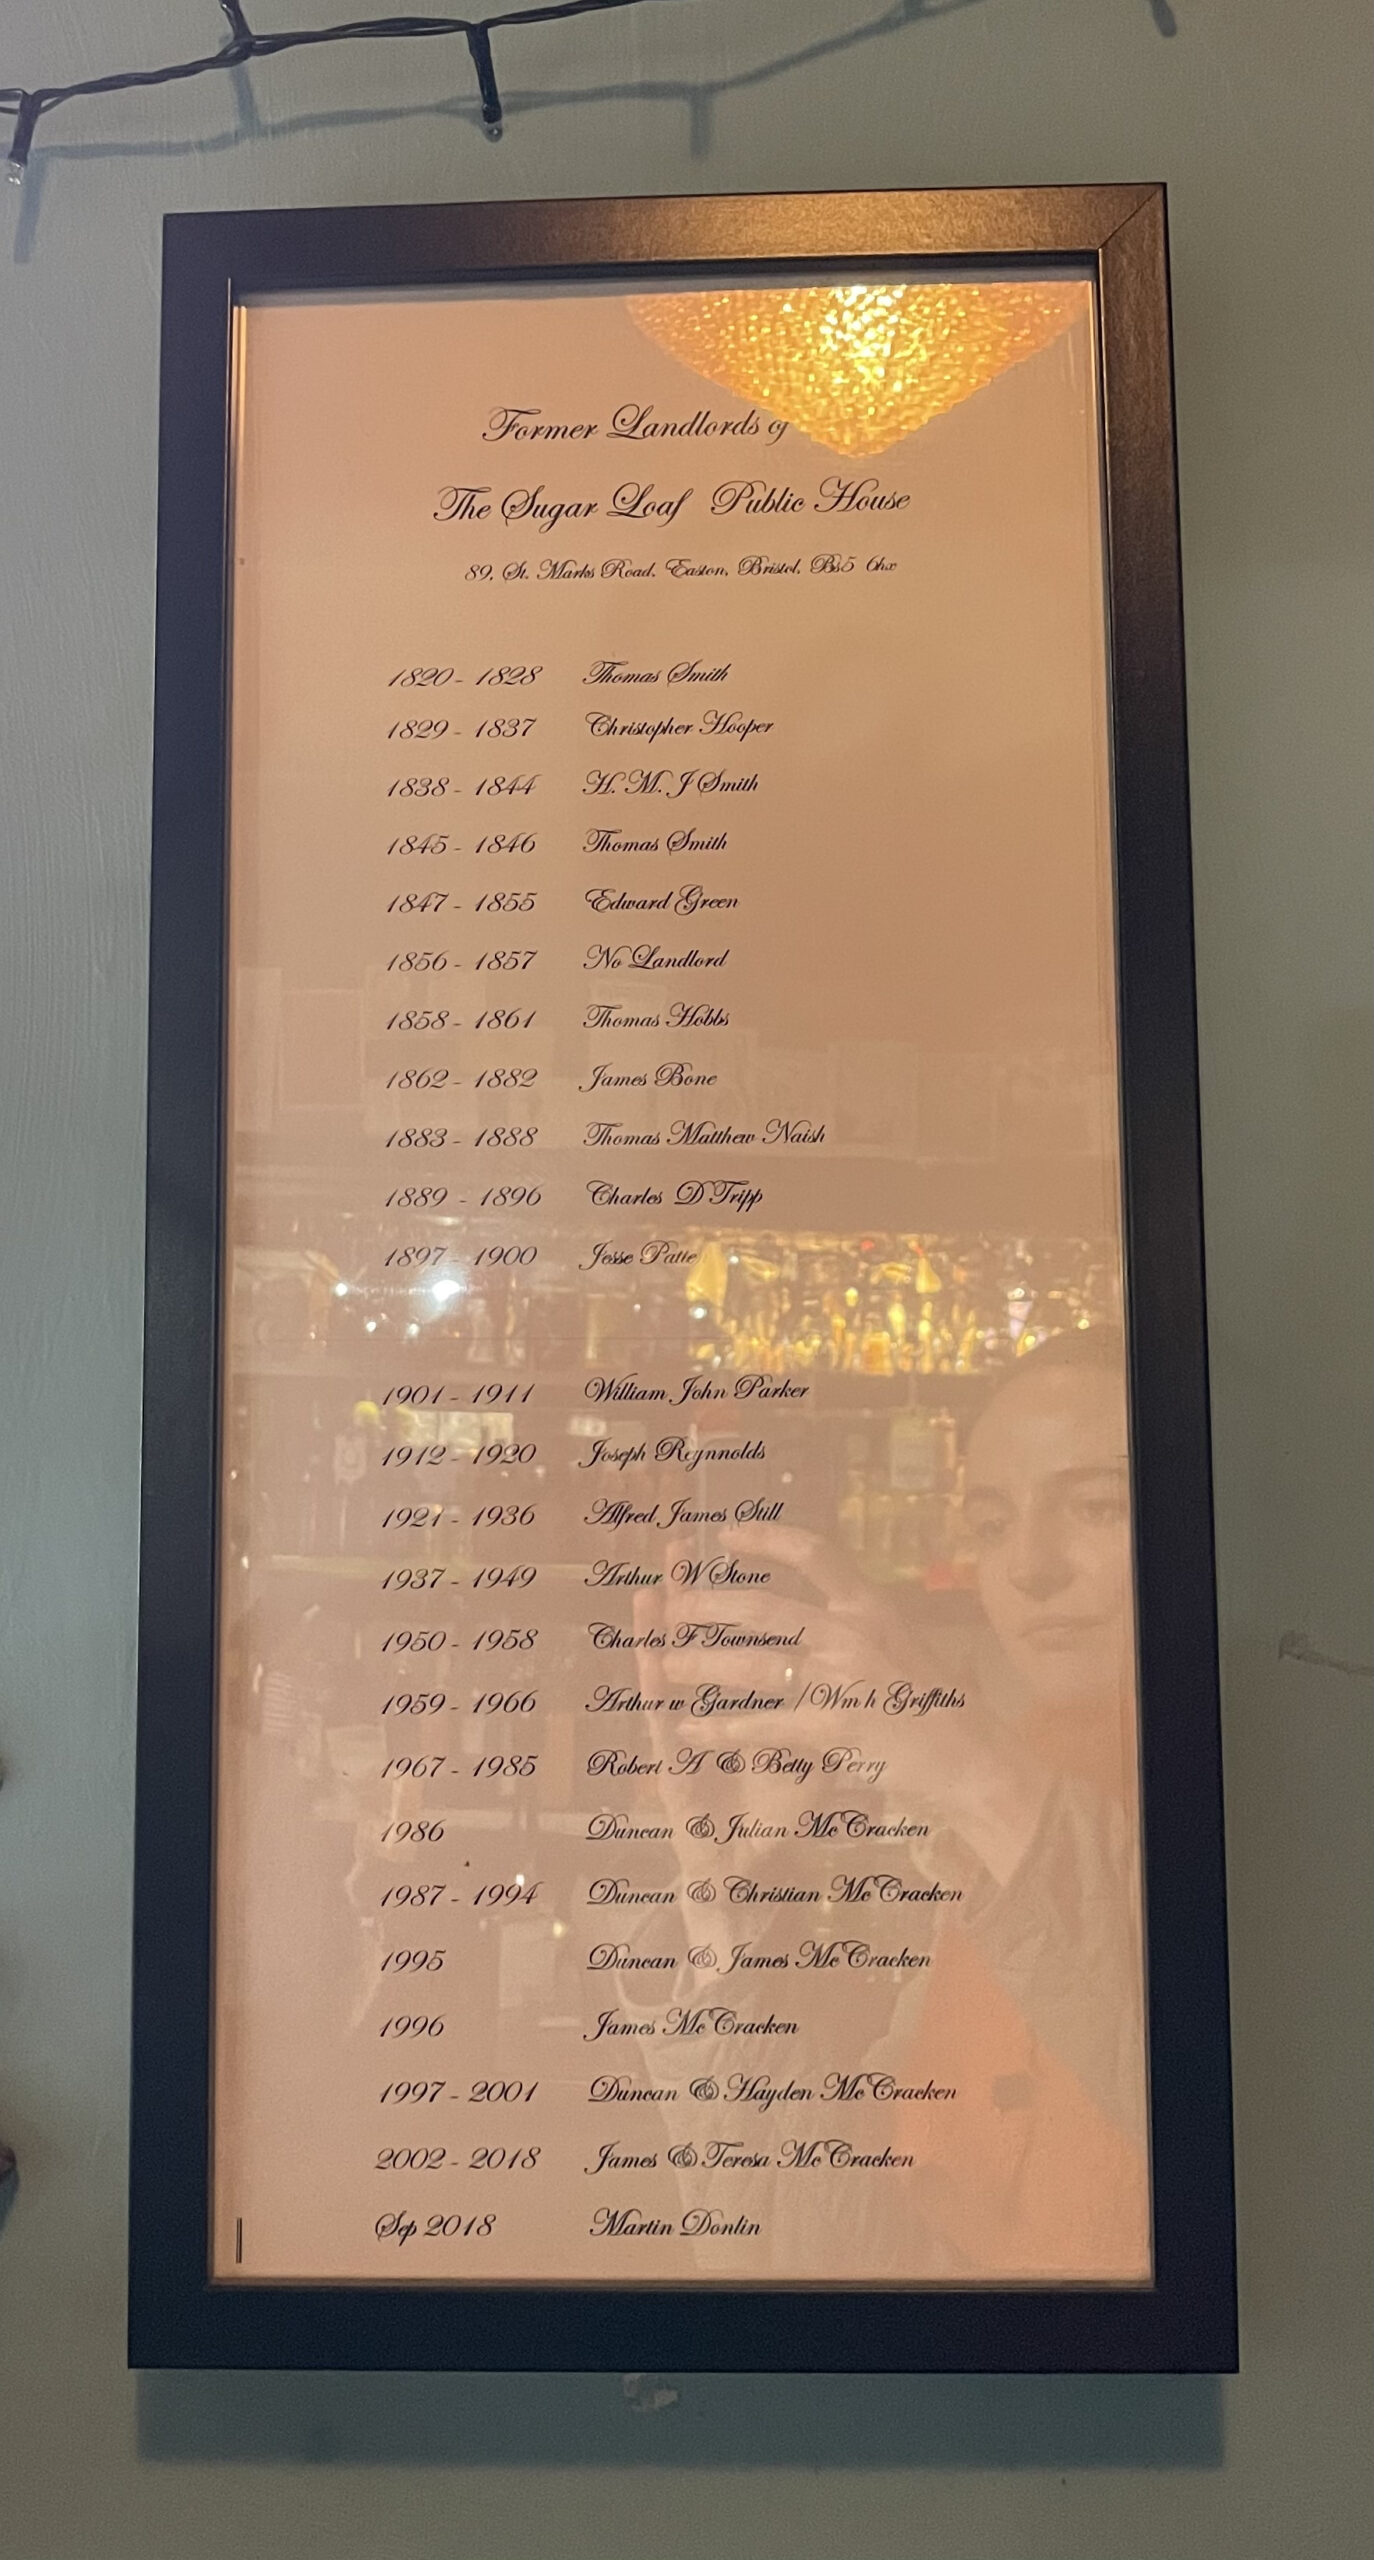 Former Landlords of
The Sugar Loaf Public House
89, St. Marks Road. Easton, Bristol, Bs5 6hx
1820 - 1828 Thomas Smith
1829 - 1837 Christopher Hooper
1838 - 1844 H. M. J Smith
1845 - 1846 Thomas Smith
1847 - 1855 Edward Green
1856 - 1857 No Landlord
1858 - 1861 Thomas Hobbs
1862 - 1882 James Bone
1883 - 1888 Thomas Matthew Naish
1889 - 1896 Charles D Tripp
1897 - 1900 Jesse
1901 - 1911 William John Parker
1912 - 1920 Joseph Reynnolds
1921 - 1936 Alfred James Still
1937 - 1949 Arthur W Stone
1950 - 1958 Charles F Townsend
1959 - 1966 Arthur w Gardner / Wm h Griffiths
1967 - 1985 Robert A & Betty Perry
1986 Duncan & Julian McCracken
1987 - 1994 Duncan & Christian McCracken
1995 Duncan & James McCracken
1996 James McCracken
1997 - 2001 Duncan & Hayden McCracken
2002 - 2018 James & Teresa McCracken
Sep 2018 Martin Donlin